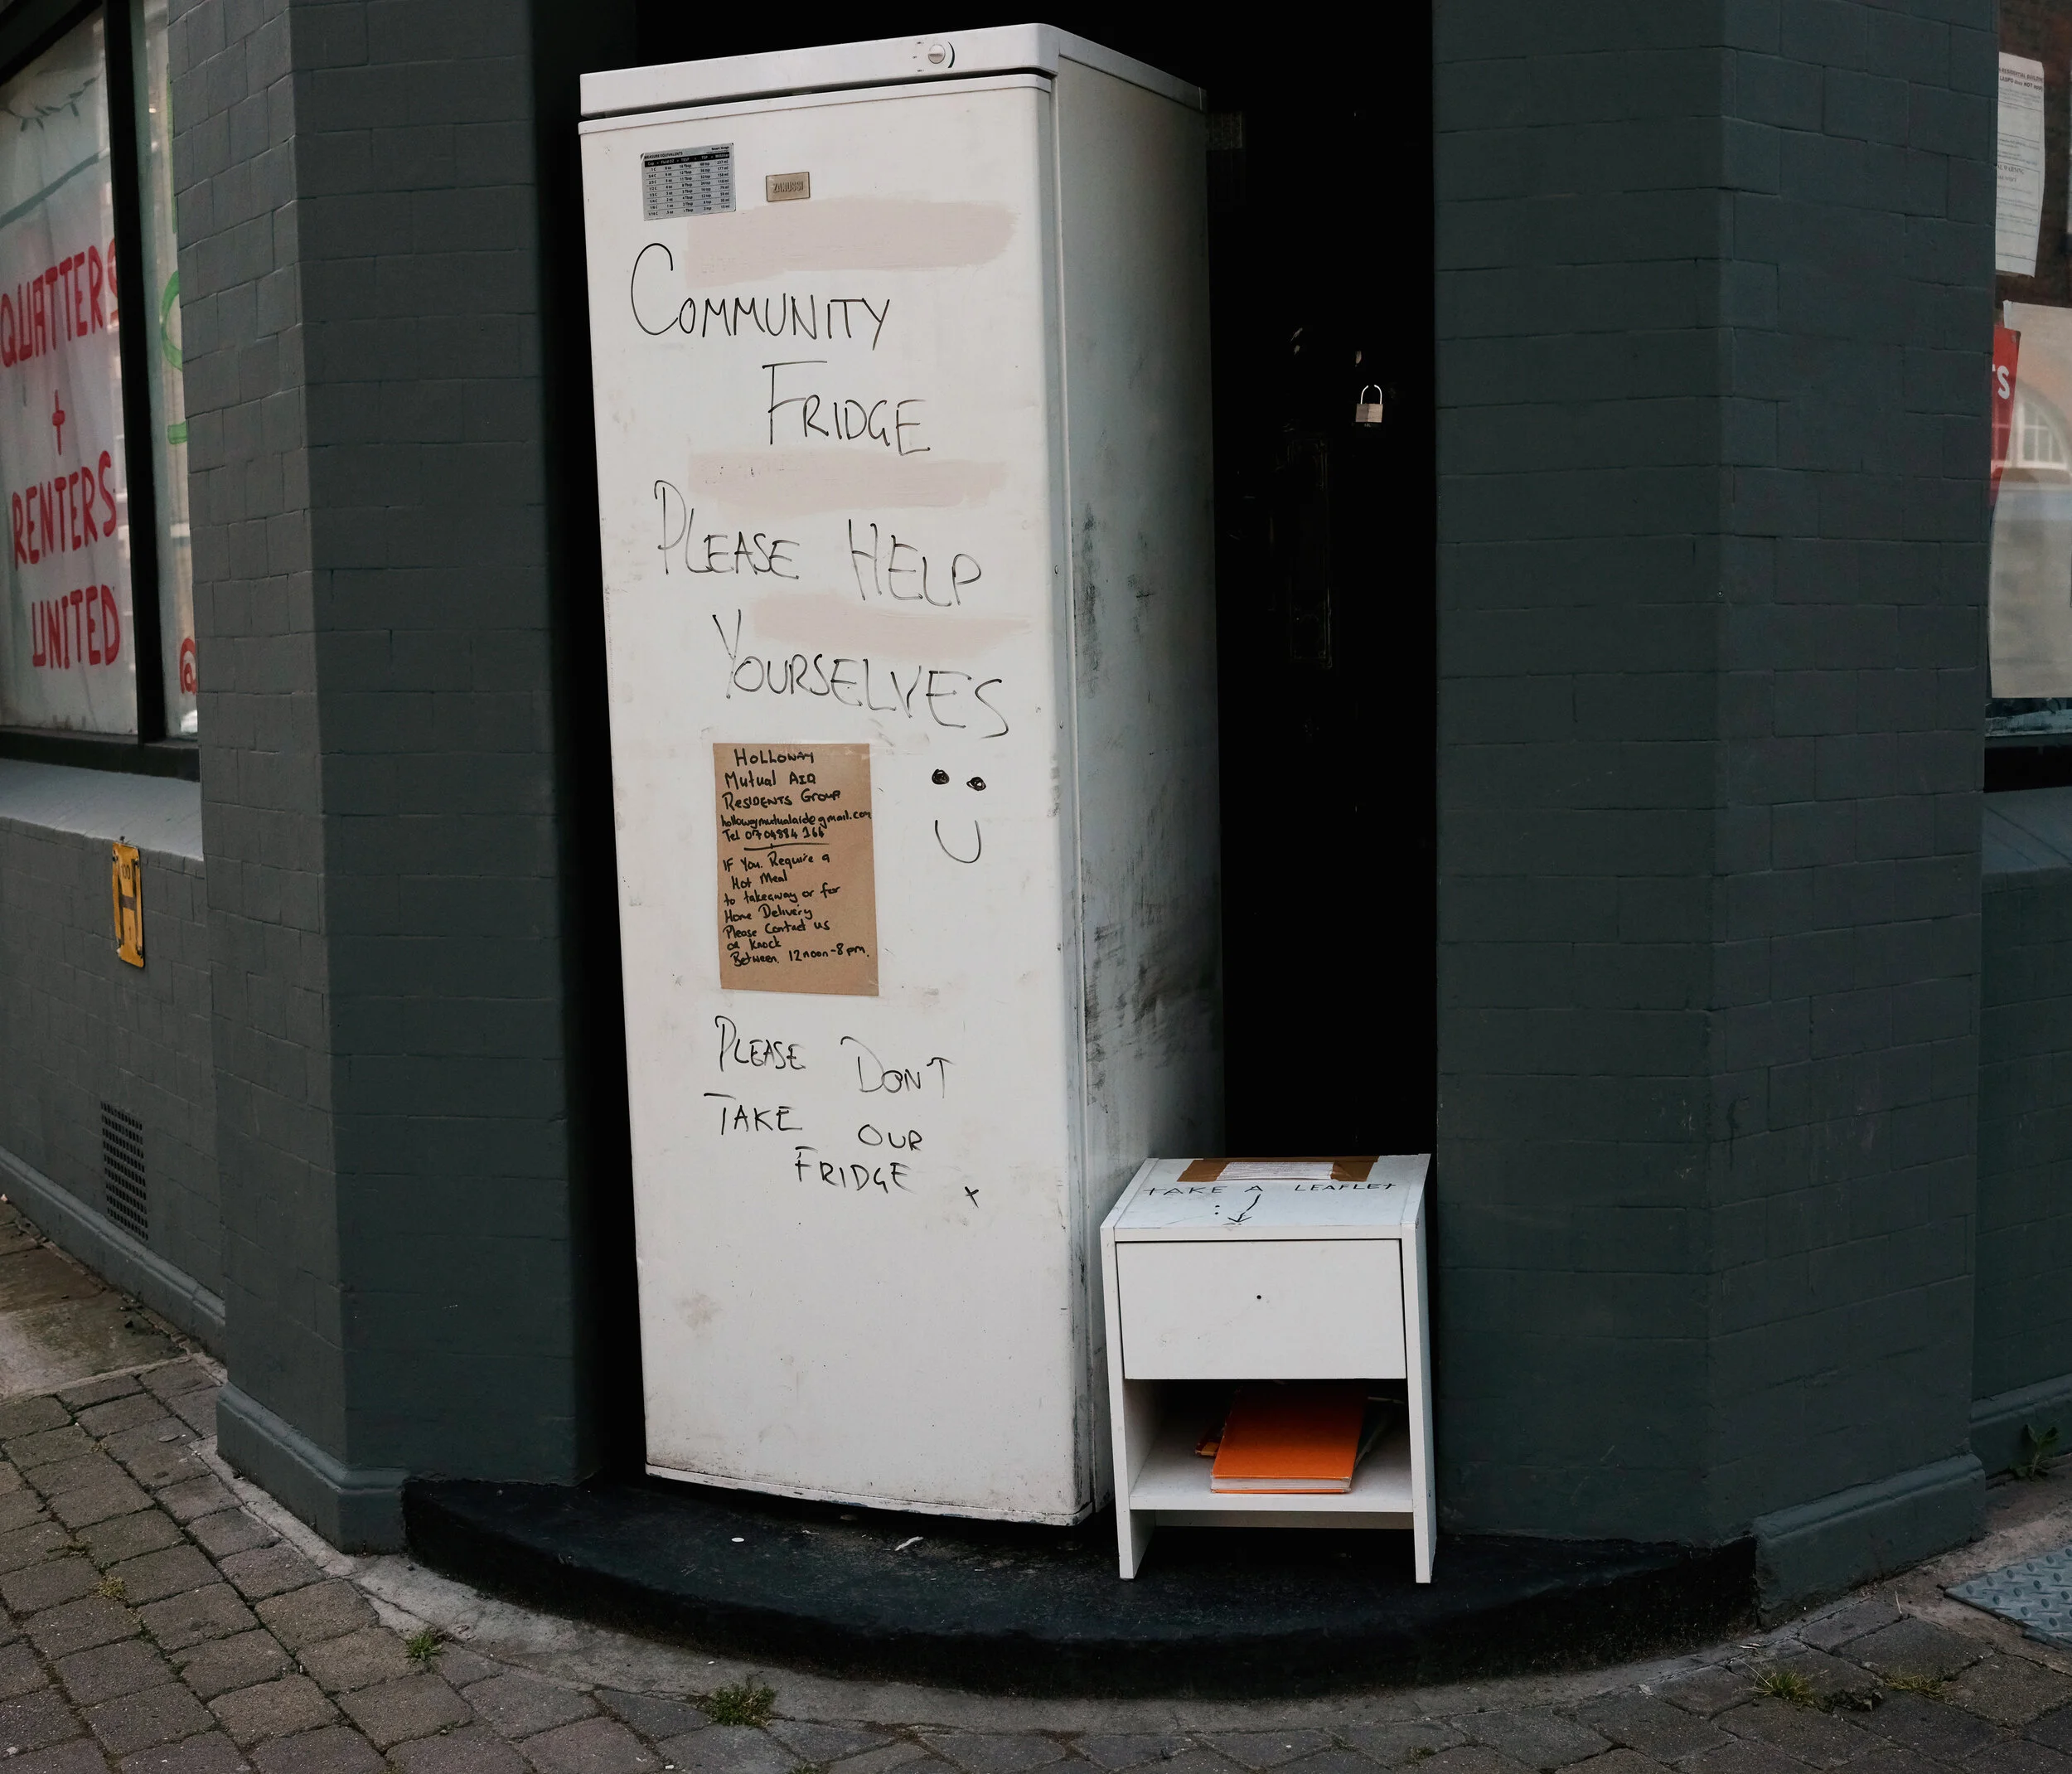 QUATTERS
+
RENTERS
UNITED
@
MEASURE EQUIVALENTS
ZANUSSI
COMMUNITY
FRIDGE
PLEASE HELP
YOURSELVES
HOLLOWAY
Mutual AID
RESIDENTS GROUP
hollowaymutualaid@gmail.com
IF You Require a
Hot Meal
to takeaway or for
Home Delivery
Please Contact us
or Knock
Between. 12 noon-8pm.
PLEASE DON'T
TAKE OUR
FRIDGE x
TAKE A LEAFLET
H